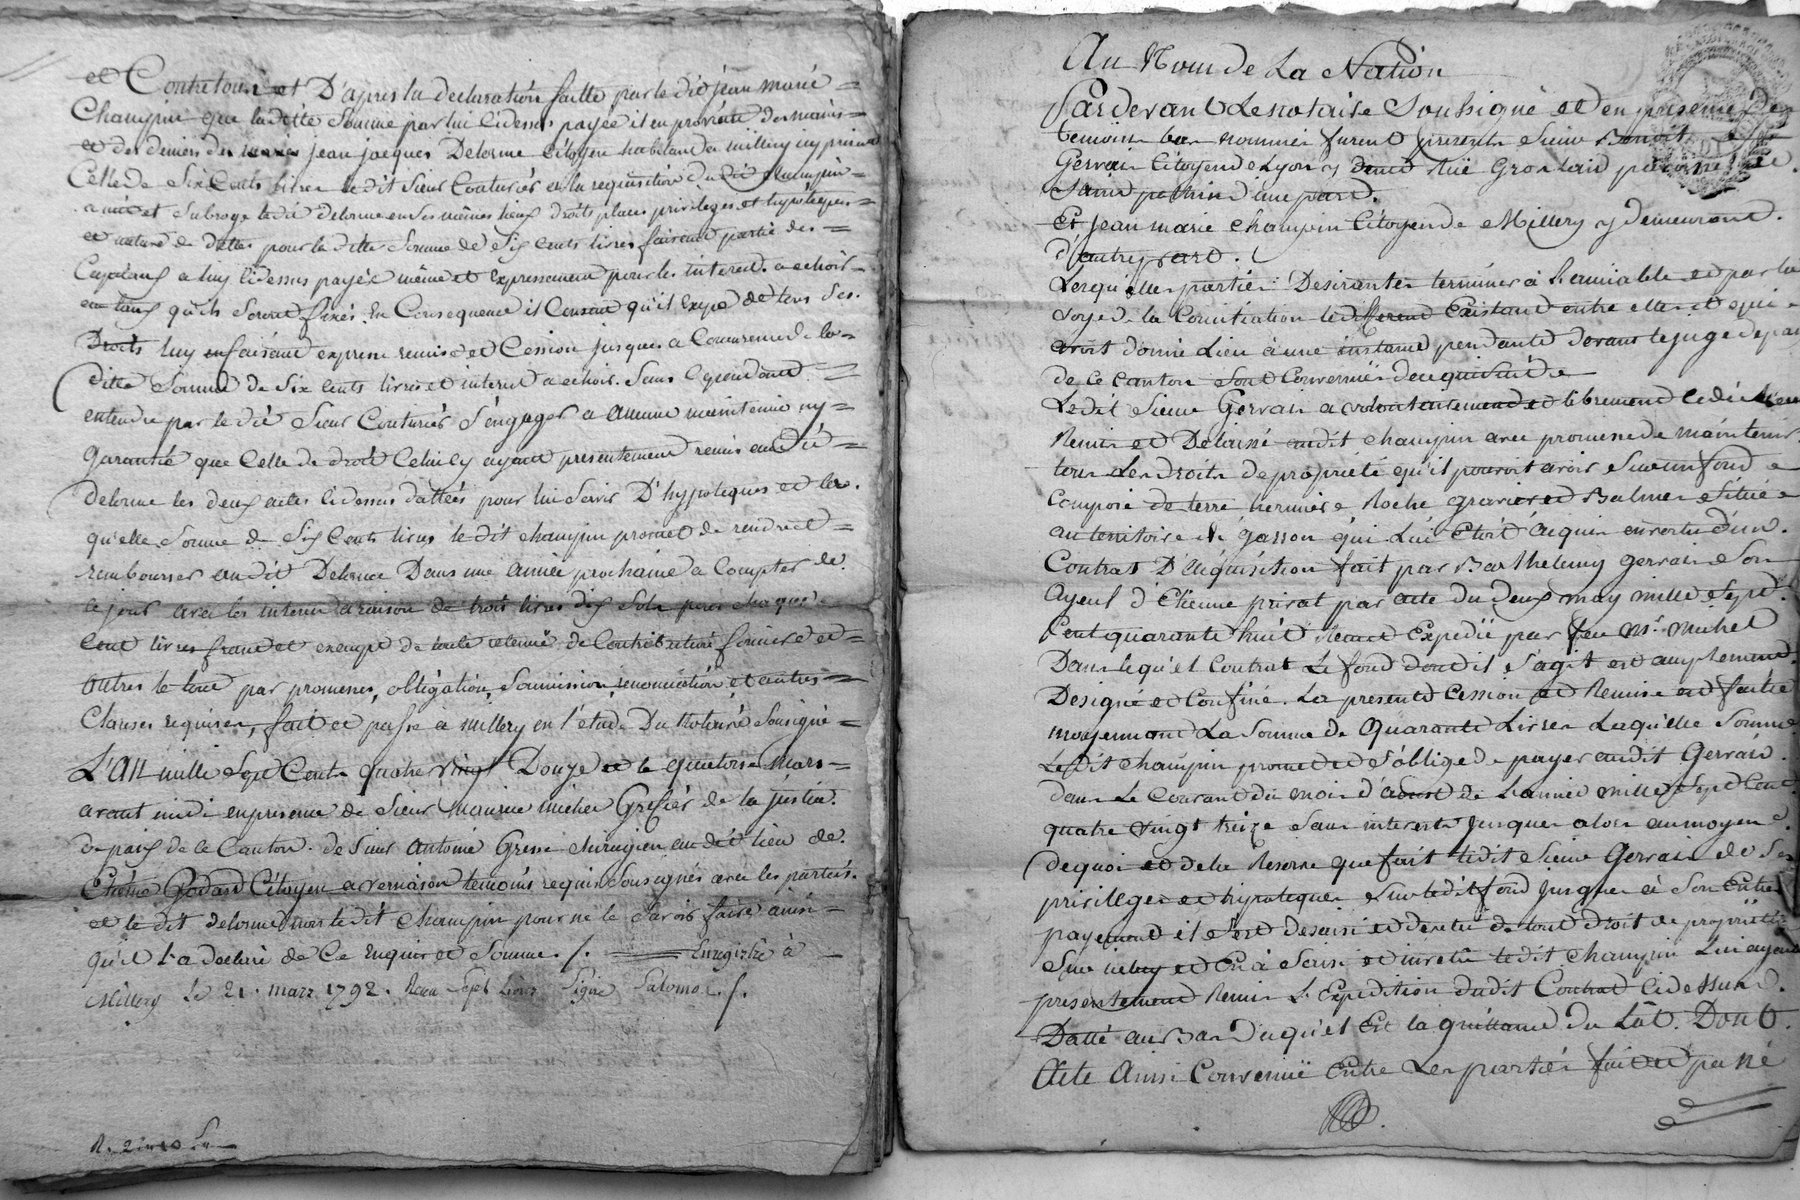 et Contretout et D'apres la declaration faitte par le dit jean marie =
Champin que la ditte Somme par lui cidessus payée il en provient des mains =
et des deniers de jean jacques Delorme Citoyen habitant a millery
Celle de Six Cents livres le dit Sieur Couturier en la requisition du dit champin =
a mis et Subrogé le dit delorme en Ses mêmes lieux droits places privileges et hypoteques =
et nature de dettes pour la ditte Somme de Six Cents livres faisant partie des =
Capitaux a luy Cidessus payée même et expressement pour les interets a echoir =
qu'ils Soient fixés. En Consequence il Consent qu'il Exige de tous Ses.
Droits luy en faisant expresse remise et Cession jusques a Concurrence de la =
ditte Somme de Six Cents livres et interets a echoir. Sans Cependant =
entendre par le dit Sieur Couturier S'engager a aucune maintenue ny =
garantie que Celle de droit Celuicy ayant presentement remis audit =
Delorme les deux actes Cidessus dattées pour lui Servir D'hypoteques et la.
qu'elle Somme de Six Cents livres le dit champin promet de rendre et =
rembourser audit Delorme Dans une année prochaine a Compter de.
Ce jour avec les interets a raison de trois livres dix Sols pour chaque =
Cent livres franc et exempt de toute retenue de Contribution fonciere et =
autres le tout par promesses, obligation, Soumission, renonciation, et autres =
Clauses requises, fait et passé a millery en l'étude Du Notaire Sousigné =
L'AN mille Sept Cents quatre vingt Douze et le quatorze Mars =
avant midi en presence de Sieur maurice michel Greffier de la justice.
de paix de Ce Canton. de Sieur Antoine Gresse chirurgien audit lieu de.
Godard Citoyen a vernaison temoins requis Sousignés avec les parties.
et le dit delorme non le dit champin pour ne le Savoir faire ainsi =
qu'il l'a declaré de Ce Enquis et Sommé. /. Enregistré à
Millery Le 21. mars 1792. Recu Sept Livres Signé Salomon /.
Au Nom de La Nation
Pardevant Le notaire Sousigné et en presence des
temoins bas nommés furent presents Sieur Benoit
Gervais Citoyen de Lyon y demt Rüe Grolaid paroisse
Saint d'une part.
Et jean marie champin Citoyen de Millery y demeurant.
d'autre part.
Lesquelles parties Desirantes terminer à l'amiable et par la
voye de la Conciliation le different Existant entre elles et qui
avoit donné Lieu à une instance pendante devant le juge de paix
de Ce canton Sont Convenües de
Le dit Sieur Gervais a volontairement et librement cedé
Remis et Delaissé audit champin avec promesse de maintenir
tous Les droits de propriété qu'il pouvoit avoir Sur un fond
Composé de terre hermes Roche graviers et Balmes Situé
au territoire de gasson qui Lui Etoit acquis en vertu d'un.
Contrat D'acquisition fait par Barthelemy gervais Son
Ayeul d'Etienne privat par acte du deux may mille Sept.
Cent quarante huit Recu et Expedié par feu Mr. michel
Dans lequ'el Contrat Le fond dont il S'agit est amplement
Designé et Confiné. La presente Cession et Remise est faitte
moyennant La Somme de Quarante Livres Laqu'elle Somme
Le dit champin promet et S'oblige de payer audit Gervais.
dans Le Courant du mois d'aoust de L'année mille Sept Cent.
quatre vingt treize Sans interets jusques alors au moyen
de quoi et de la Reserve que fait le dit Sieur Gervais de Ses
privilege et hypoteques Sur le dit fond jusques à Son Entier
payement il S'est Desaisi et devetu de tout droit de proprieté
Sur icelluy et En a Saisi et investu le dit champin Lui ayant
presentement Remis L'Expedition dudit Contrat Cidessus.
Datté au Bas Duqu'el Est la quittance du Lât. Dont.
Acte Ainsi Convenüe Entre Les parties fait et passé